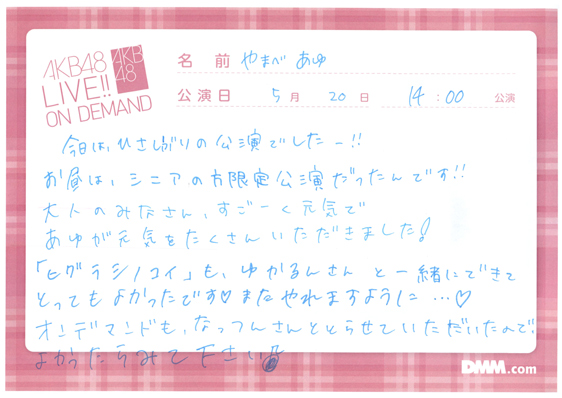 AKB48
LIVE!!
ON DEMAND
AKB
48
名前 やまべ あゆ
公演日 5月 20日 14:00 公演
今日は、ひさしぶりの公演でしたー!!
お昼は、シニアの方限定公演だったんです!!
大人のみなさん、すごーく元気で
あゆが元気をたくさんいただきました!
「ヒグラシノコイ」も、ゆかるんさんと一緒にできて
とってもよかったです♡またやれますように…♡
オンデマンドも、なっつんさんととらせていただいたので、
よかったらみて下さい
DMM.com